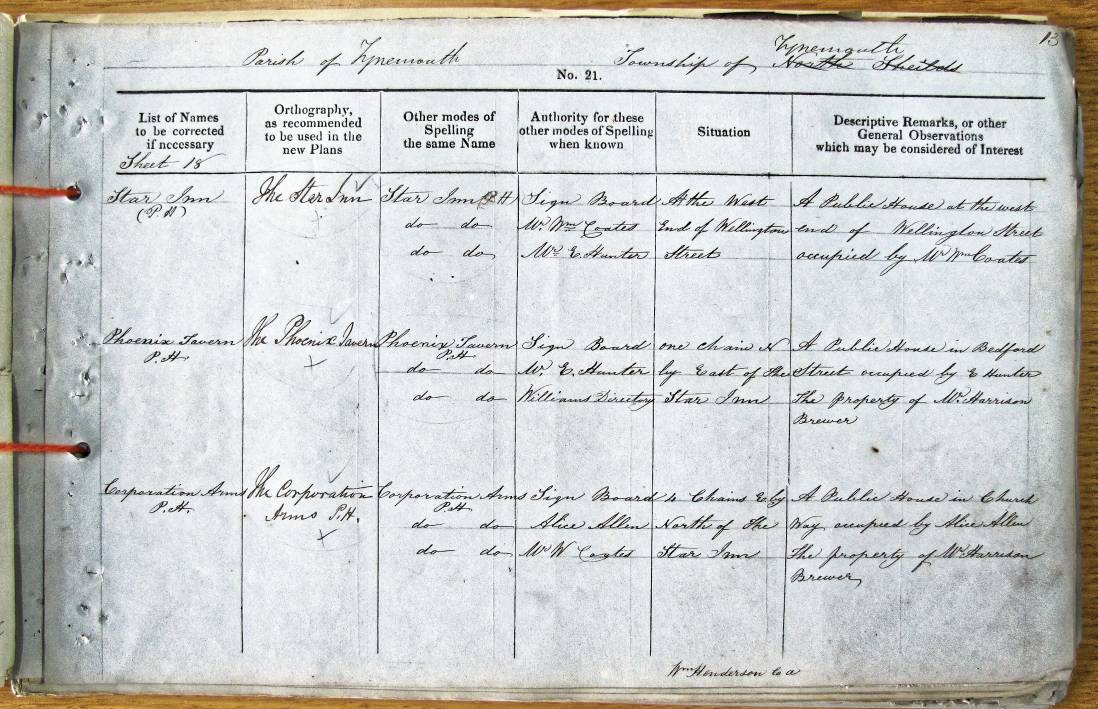 13
Parish of Tynemouth
Township of Tynemouth
North Sheilds
No. 21.
List of Names
to be corrected
if necessary
Sheet 18
Orthography,
as recommended
to be used in the
new Plans
Other modes of
Spelling
the same Name
Authority for these
other modes of Spelling
when known
Situation
Descriptive Remarks, or other
General Observations
which may be considered of Interest
Star Inn
(P H)
The Star Inn
Star Inn (P H)
do do
do do
Sign Board
Mr. Wm Coates
Mr. E. Hunter
At the West
End of Wellington
Street
A Public House at the west
end of Wellington Street
occupied by Mr Wm Coates
Phoenix Tavern
P.H.
The Phoenix Tavern
Phoenix Tavern
P.H
do do
do do
Sign Board
Mr. E. Hunter
Williams Directory
one chain N
by East of the
Star Inn
A Public House in Bedford
Street occupied by E Hunter
The property of Mr. Harrison
Brewer
Corporation Arms
P.H.
The Corporation
Arms P.H.
Corporation Arms
P.H
do do
do do
Sign Board
Alice Allen
Mr W Coates
4 Chains E by
North of the
Star Inn
A Public House in Church
Way, occupied by Alice Allen
The property of Mr Harrison
Brewer
Wm Henderson C a